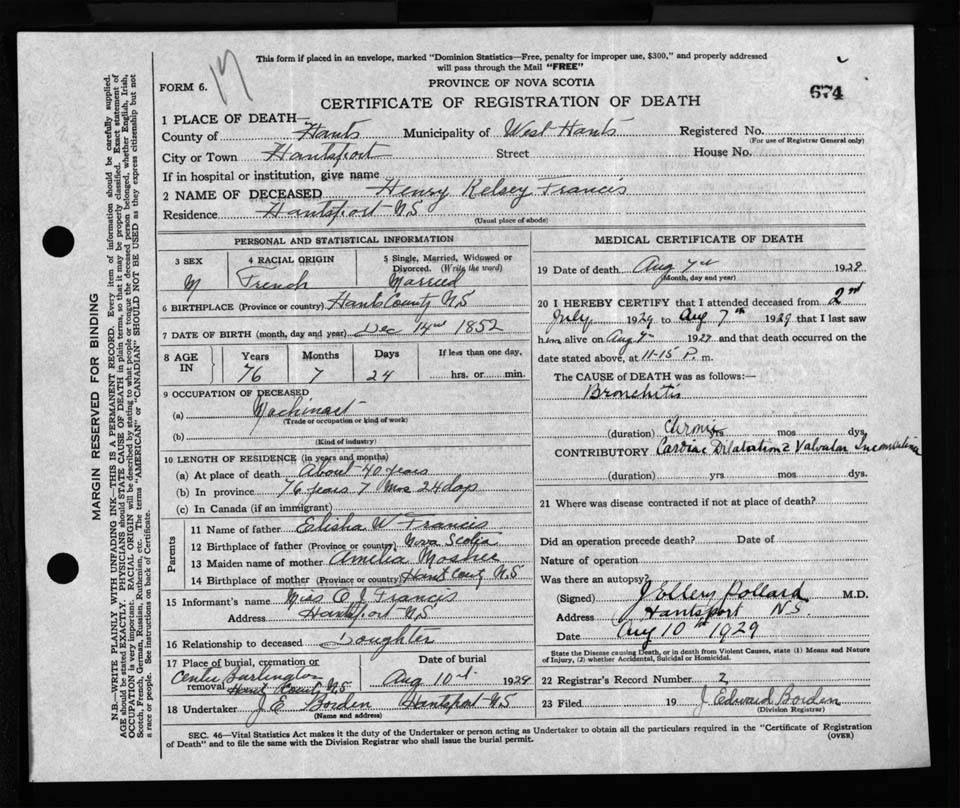 This form if placed in an envelope, marked "Dominion Statistics—Free, penalty for improper use, $300," and properly addressed
will pass through the Mail "FREE"
FORM 6.
17
PROVINCE OF NOVA SCOTIA
674
CERTIFICATE OF REGISTRATION OF DEATH
1 PLACE OF DEATH—
County of Hants Municipality of West Hants Registered No.
(For use of Registrar General only)
City or Town Hantsport Street House No.
If in hospital or institution, give name
2 NAME OF DECEASED Henry Kelsey Francis
Residence Hantsport N.S
(Usual place of abode)
PERSONAL AND STATISTICAL INFORMATION
3 SEX 4 RACIAL ORIGIN 5 Single, Married, Widowed or
Divorced. (Write the word)
M French Married
6 BIRTHPLACE (Province or country) Hants County N.S
7 DATE OF BIRTH (month, day and year) Dec 14 1852
8 AGE IN Years Months Days If less than one day,
76 7 24 hrs. or min.
9 OCCUPATION OF DECEASED
(a) Machinast
(Trade or occupation or kind of work)
(b)
(Kind of industry)
10 LENGTH OF RESIDENCE (in years and months)
(a) At place of death About 40 years
(b) In province 76 years 7 Mos 24 days
(c) In Canada (if an immigrant)
Parents
11 Name of father Elisha W Francis
12 Birthplace of father (Province or country) Nova Scotia
13 Maiden name of mother Amelia Mosher
14 Birthplace of mother (Province or country) Hants County N.S
15 Informant's name Miss C J Francis
Address Hantsport N.S
16 Relationship to deceased Daughter
17 Place of burial, cremation or removal Date of burial
Center Burlington
Hants County N.S Aug 10 1929
18 Undertaker J.E Borden Hantsport N.S
(Name and address)
MEDICAL CERTIFICATE OF DEATH
19 Date of death Aug 7 1929
(Month, day and year)
20 I HEREBY CERTIFY that I attended deceased from 2nd
July 1929 to Aug 7th 1929 that I last saw
him alive on Aug 1929 and that death occurred on the
date stated above, at 11-15 P. m.
The CAUSE OF DEATH was as follows:—
Bronchitis
Chronic
(duration) yrs mos dys.
CONTRIBUTORY Cardiac Dilatation & Valvular
(duration) yrs mos dys.
21 Where was disease contracted if not at place of death?
Did an operation precede death? Date of
Nature of operation
Was there an autopsy?
(Signed) Pollard M.D.
Address Hantsport N.S
Date Aug 10th 1929
State the Disease causing Death, or in death from Violent Causes, state (1) Means and Nature
of Injury, (2) whether Accidental, Suicidal or Homicidal.
22 Registrar's Record Number 2
23 Filed 19 J. Edward Borden
(Division Registrar)
SEC. 46—Vital Statistics Act makes it the duty of the Undertaker or person acting as Undertaker to obtain all the particulars required in the "Certificate of Registration
of Death" and to file the same with the Division Registrar who shall issue the burial permit.
(OVER)
MARGIN RESERVED FOR BINDING
N.B.—WRITE PLAINLY WITH UNFADING INK—THIS IS A PERMANENT RECORD. Every item of information should be carefully supplied.
AGE should be stated EXACTLY. PHYSICIANS should STATE CAUSE OF DEATH in plain terms, so that it may be properly classified. Exact statement of
OCCUPATION is very important. RACIAL ORIGIN will be described by stating to what people or tongue the deceased person belonged, whether English, Irish,
Scotch, French, German, Russian, Ruthenian, etc. The terms "AMERICAN" or "CANADIAN" SHOULD NOT BE USED as they express citizenship but not
a race or people. See instructions on back of Certificate.